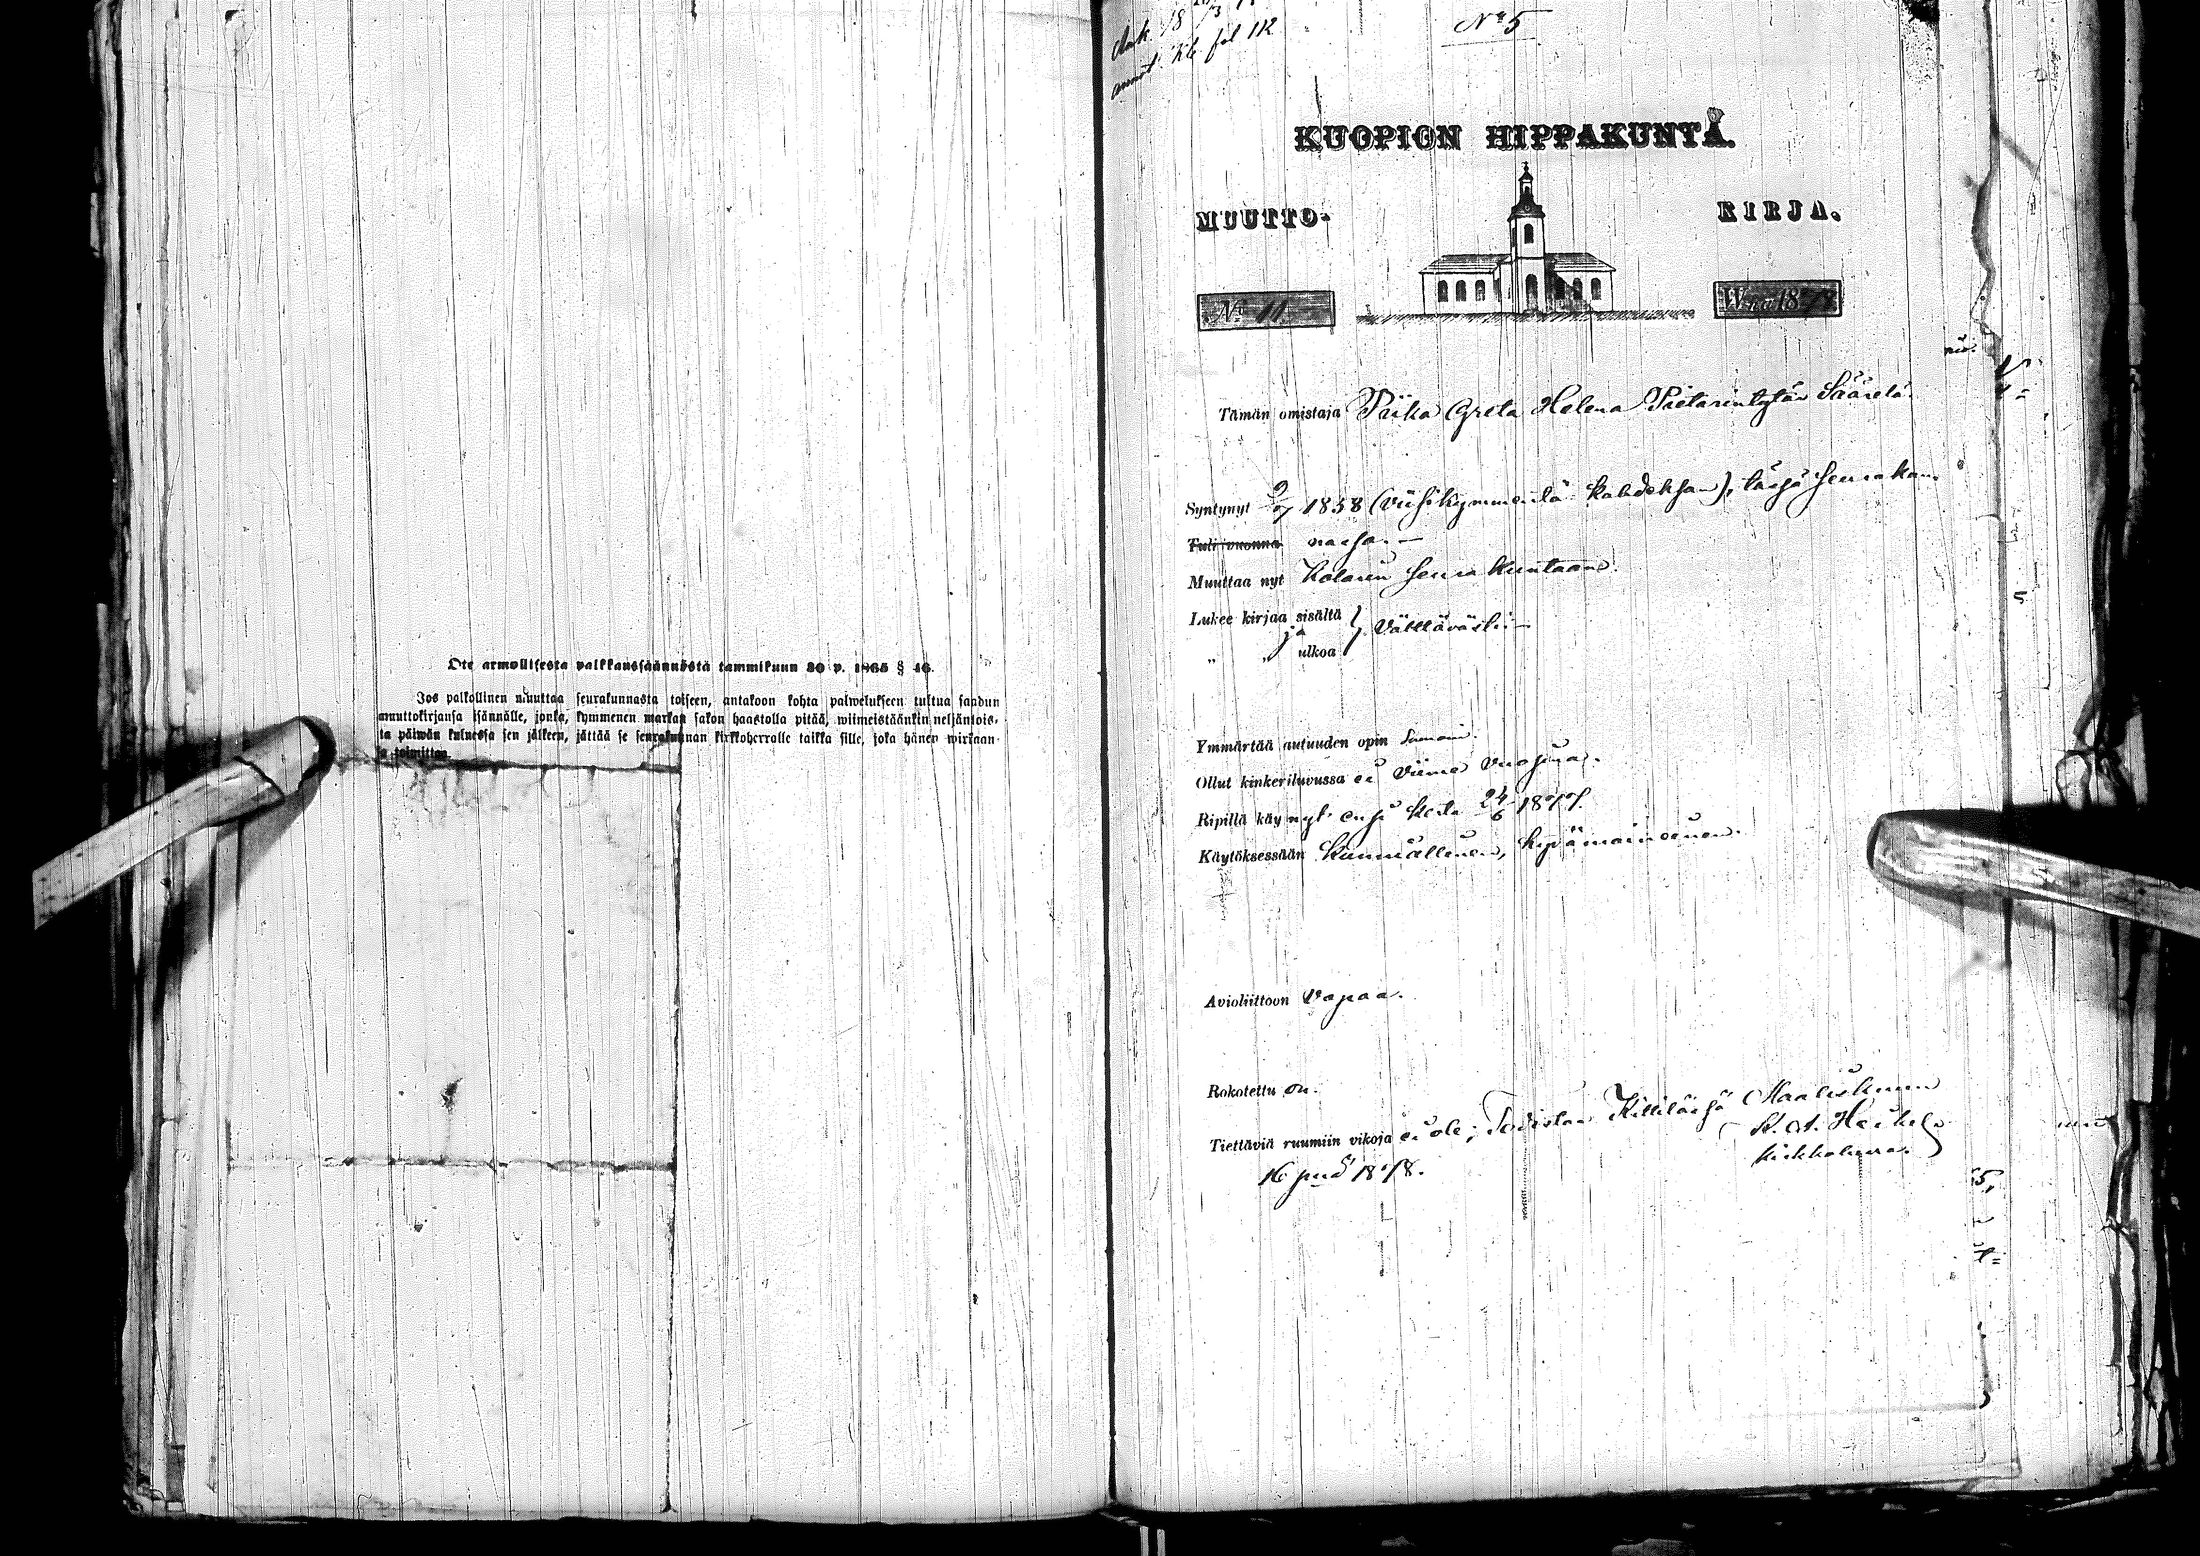 Ote armollisesta palkkaussäännöstä tammikuun 30 p. 1865 § 46.
Jos palkollinen muuttaa seurakunnasta toiseen, antakoon kohta palwelukseen tultua saadun
muuttokirjansa isännälle, jonka, kymmenen markan sakon haastolla pitää, wiimeistäänkin neljäntois-
ta päiwän kuluessa sen jälkeen, jättää se seurakunnan kirkkoherralle taikka sille, joka hänen wirkaan-
sa toimittaa.
annot. Kb fol 112
No 5
KUOPION HIPPAKUNTA.
MUUTTO- KIRJA.
No 11 W:na 1878
Tämän omistaja Piika Greta Helena Pietarintytär Säärelä.
Syntynyt 9/7 1858 (viisikymmentä kahdeksan), tässä seurakun-
Tuli vuonna nassa. —
Muuttaa nyt Kolarin seurakuntaan.
Lukee kirjaa sisältä
ja } Välttävästi —
„ „ ulkoa
Ymmärtää autuuden opin samoin.
Ollut kinkeriluvussa ei viime vuosina.
Ripillä käynyt ensi kerta 24/6 1877
Käytöksessään kunniallinen, hyvämaineinen.
Avioliittoon vapaa.
Rokotettu on.
Tiettäviä ruumiin vikoja ei ole; Todistaa Kittilässä Maaliskuun
16 pnä 1878.
K. A. Heikel
kirkkoherra.